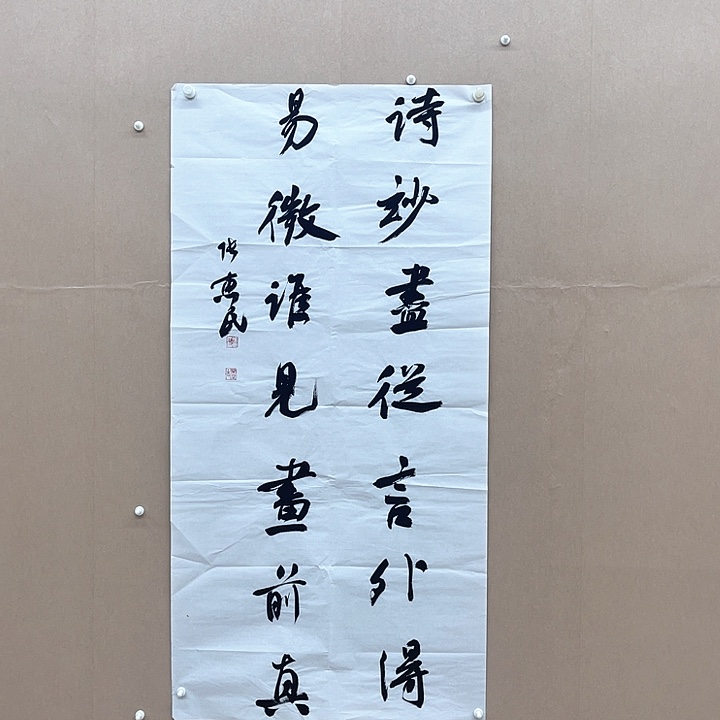 诗妙盡從言外得
易微谁見畫前真
张惠民